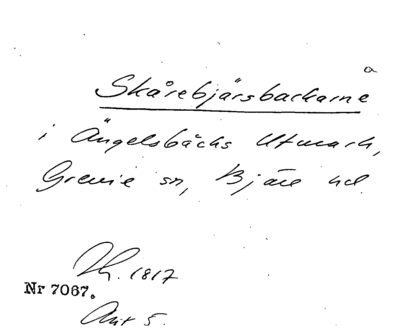 a
Skårebjärsbackarne
i Ängelsbäcks Utmark,
Grevie sn, Bjäre hd.
1817
Nr 7067.
Ant 5.